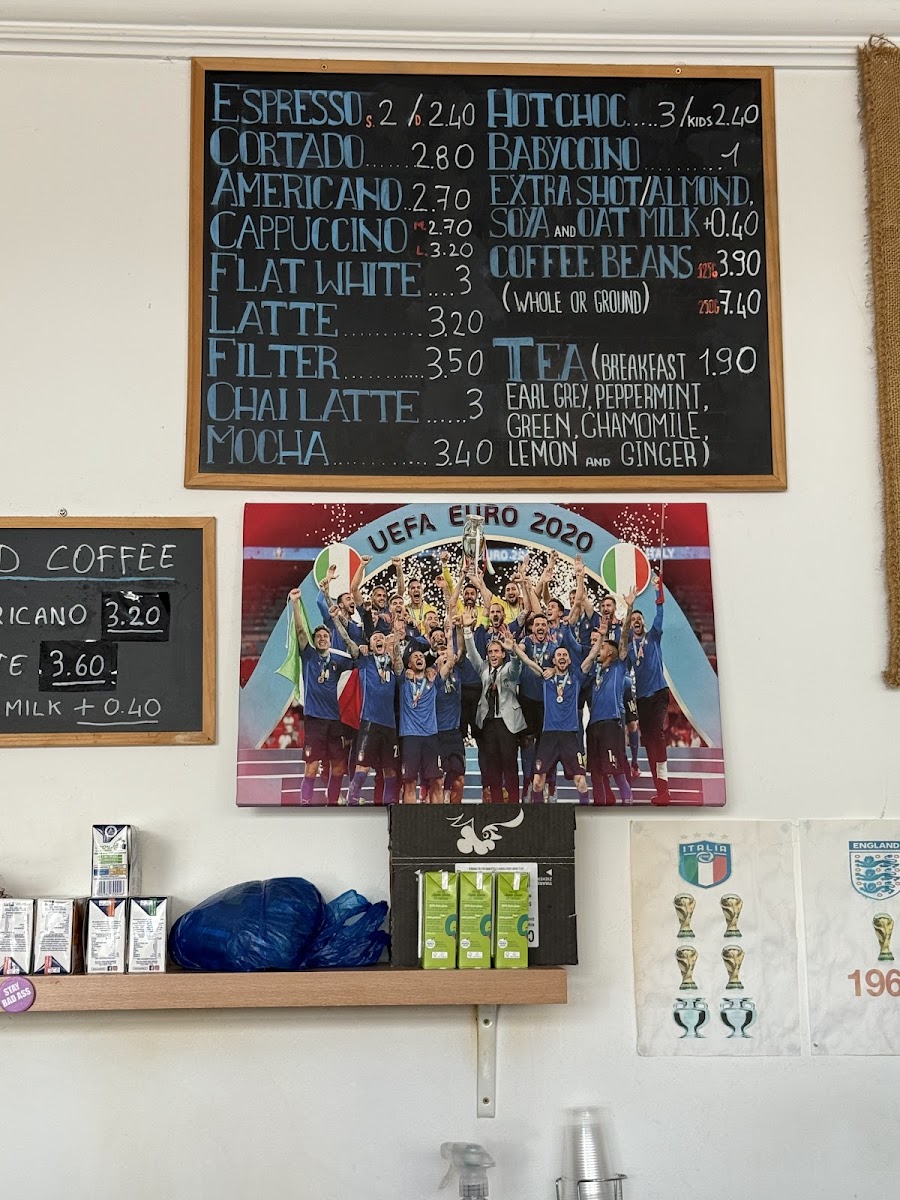 ESPRESSO S. 2 / D 2.40
CORTADO.......2.80
AMERICANO..2.70
CAPPUCCINO M. 2.70
L. 3.20
FLAT WHITE ....3
LATTE ............3.20
FILTER ............3.50
CHAI LATTE ......3
MOCHA..............3.40
HOT CHOC.....3/KIDS 2.40
BABYCCINO .........1
EXTRA SHOT/ALMOND,
SOYA AND OAT MILK +0.40
COFFEE BEANS 125G 3.90
(WHOLE OR GROUND) 250G 7.40
TEA (BREAKFAST 1.90
EARL GREY, PEPPERMINT,
GREEN, CHAMOMILE,
LEMON AND GINGER)
D COFFEE
RICANO 3.20
TE .3.60.
MILK + 0.40
UEFA EURO 2020
EURO 20
ITALY
ITALIA
ENGLAND
196
STAY
BAD ASS